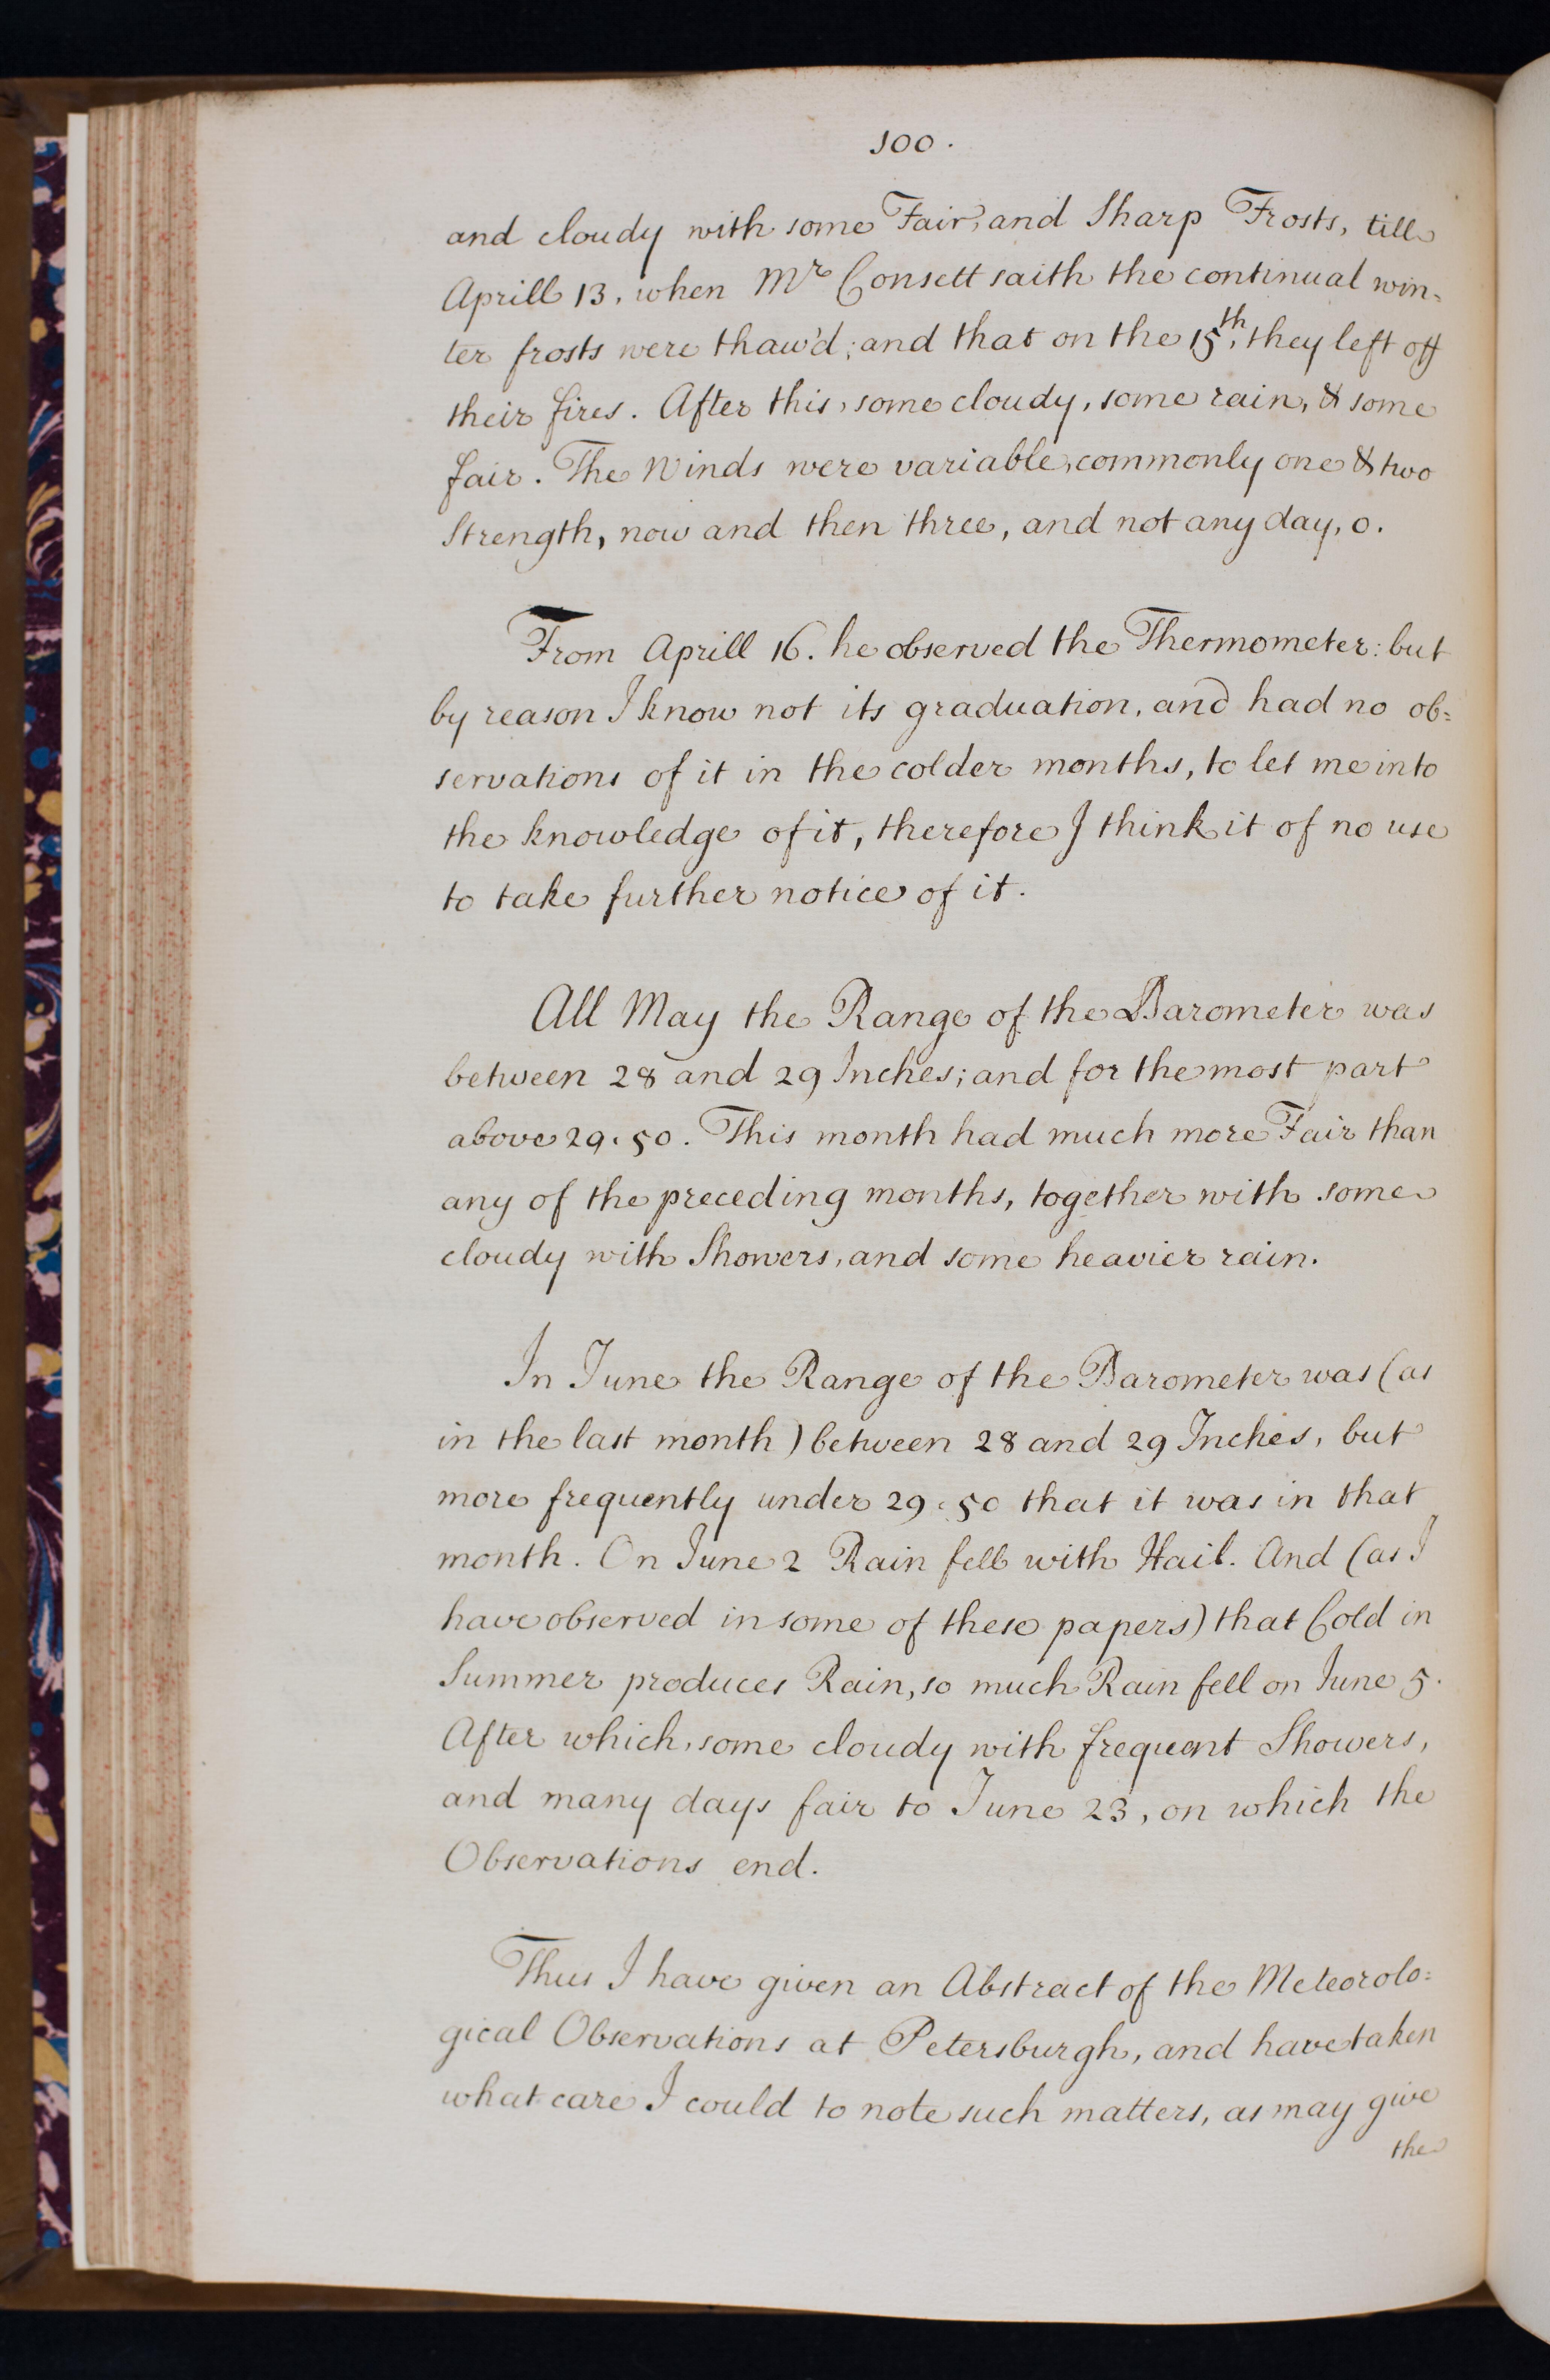 100.
and cloudy with some Fair, and Sharp Frosts, till
Aprill 13, when Mr Consett saith the continual win=
ter frosts were thaw'd; and that on the 15th, they left off
their fires. After this, some cloudy, some rain, & some
fair. The Winds were variable, commonly one & two
Strength, now and then three, and not any day, 0.
From Aprill 16. he observed the Thermometer: but
by reason I know not its graduation, and had no ob=
servations of it in the colder months, to let me into
the knowledge of it, therefore I think it of no use
to take further notice of it.
All May the Range of the Barometer was
between 28 and 29 Inches; and for the most part
above 29.50. This month had much more Fair than
any of the preceding months, together with some
cloudy with Showers, and some heavier rain.
In June the Range of the Barometer was (as
in the last month) between 28 and 29 Inches, but
more frequently under 29.50 that it was in that
month. On June 2 Rain fell with Hail. And (as I
have observed in some of these papers) that Cold in
Summer produces Rain, so much Rain fell on June 5.
After which, some cloudy with frequent Showers,
and many days fair to June 23, on which the
Observations end.
Thus I have given an Abstract of the Meteorolo=
gical Observations at Petersburgh, and have taken
what care I could to note such matters, as may give
the